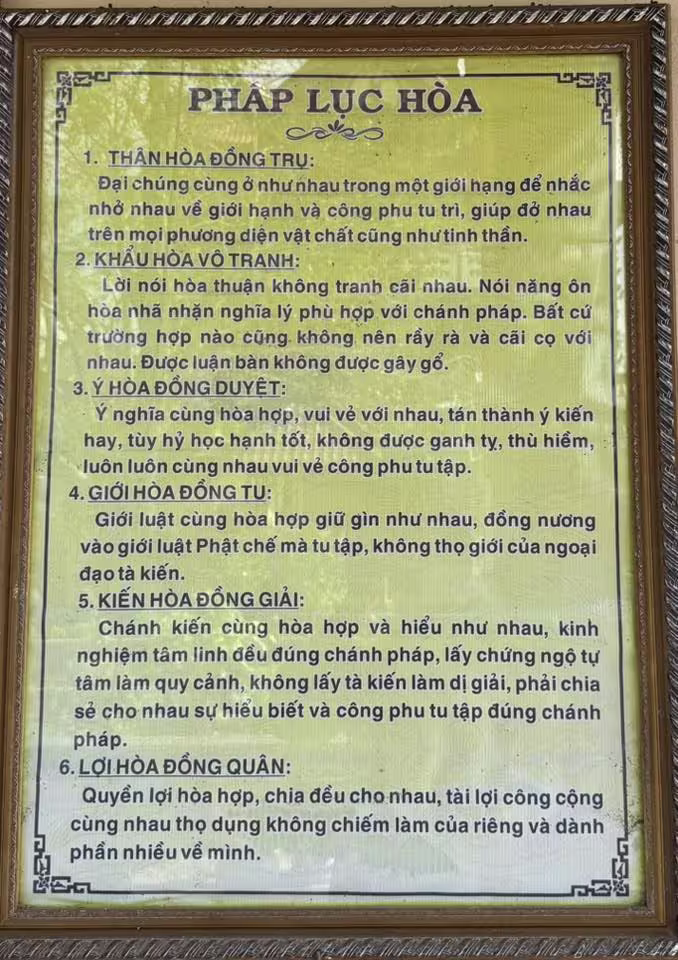 PHÁP LỤC HÒA
1. THÂN HÒA ĐỒNG TRỤ:
Đại chúng cùng ở như nhau trong một giới hạng để nhắc
nhở nhau về giới hạnh và công phu tu trì, giúp đở nhau
trên mọi phương diện vật chất cũng như tinh thần.
2. KHẨU HÒA VÔ TRANH:
Lời nói hòa thuận không tranh cãi nhau. Nói năng ôn
hòa nhã nhặn nghĩa lý phù hợp với chánh pháp. Bất cứ
trường hợp nào cũng không nên rầy rà và cãi cọ với
nhau. Được luận bàn không được gây gổ.
3. Ý HÒA ĐỒNG DUYỆT:
Ý nghĩa cùng hòa hợp, vui vẻ với nhau, tán thành ý kiến
hay, tùy hỷ học hạnh tốt, không được ganh tỵ, thù hiềm,
luôn luôn cùng nhau vui vẻ công phu tu tập.
4. GIỚI HÒA ĐỒNG TU:
Giới luật cùng hòa hợp giữ gìn như nhau, đồng nương
vào giới luật Phật chế mà tu tập, không thọ giới của ngoại
đạo tà kiến.
5. KIẾN HÒA ĐỒNG GIẢI:
Chánh kiến cùng hòa hợp và hiểu như nhau, kinh
nghiệm tâm linh đều đúng chánh pháp, lấy chứng ngộ tự
tâm làm quy cảnh, không lấy tà kiến làm dị giải, phải chia
sẻ cho nhau sự hiểu biết và công phu tu tập đúng chánh
pháp.
6. LỢI HÒA ĐỒNG QUÂN:
Quyền lợi hòa hợp, chia đều cho nhau, tài lợi công cộng
cùng nhau thọ dụng không chiếm làm của riêng và dành
phần nhiều về mình.